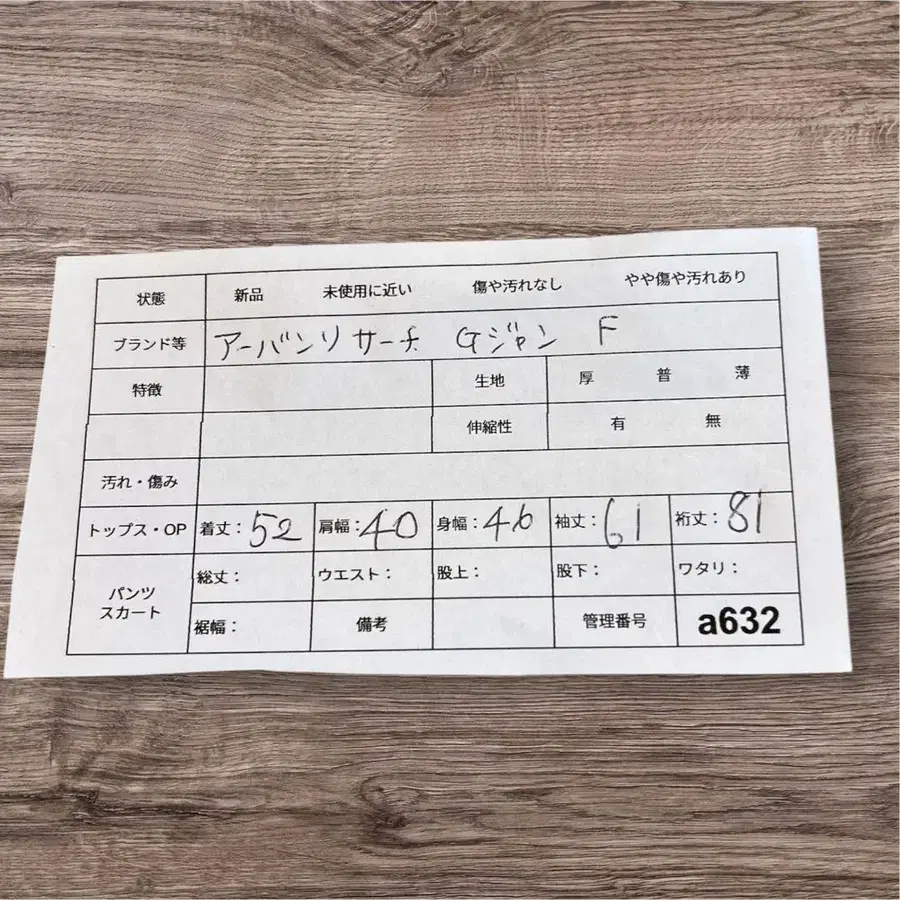 状態 新品 未使用に近い 傷や汚れなし やや傷や汚れあり
ブランド等 アーバンリサーチ Gジャン F
特徴 生地 厚 普 薄
伸縮性 有 無
汚れ・傷み
トップス・OP 着丈：52 肩幅：40 身幅：46 袖丈：61 裄丈：81
パンツ スカート 総丈： ウエスト： 股上： 股下： ワタリ：
裾幅： 備考 管理番号 a632